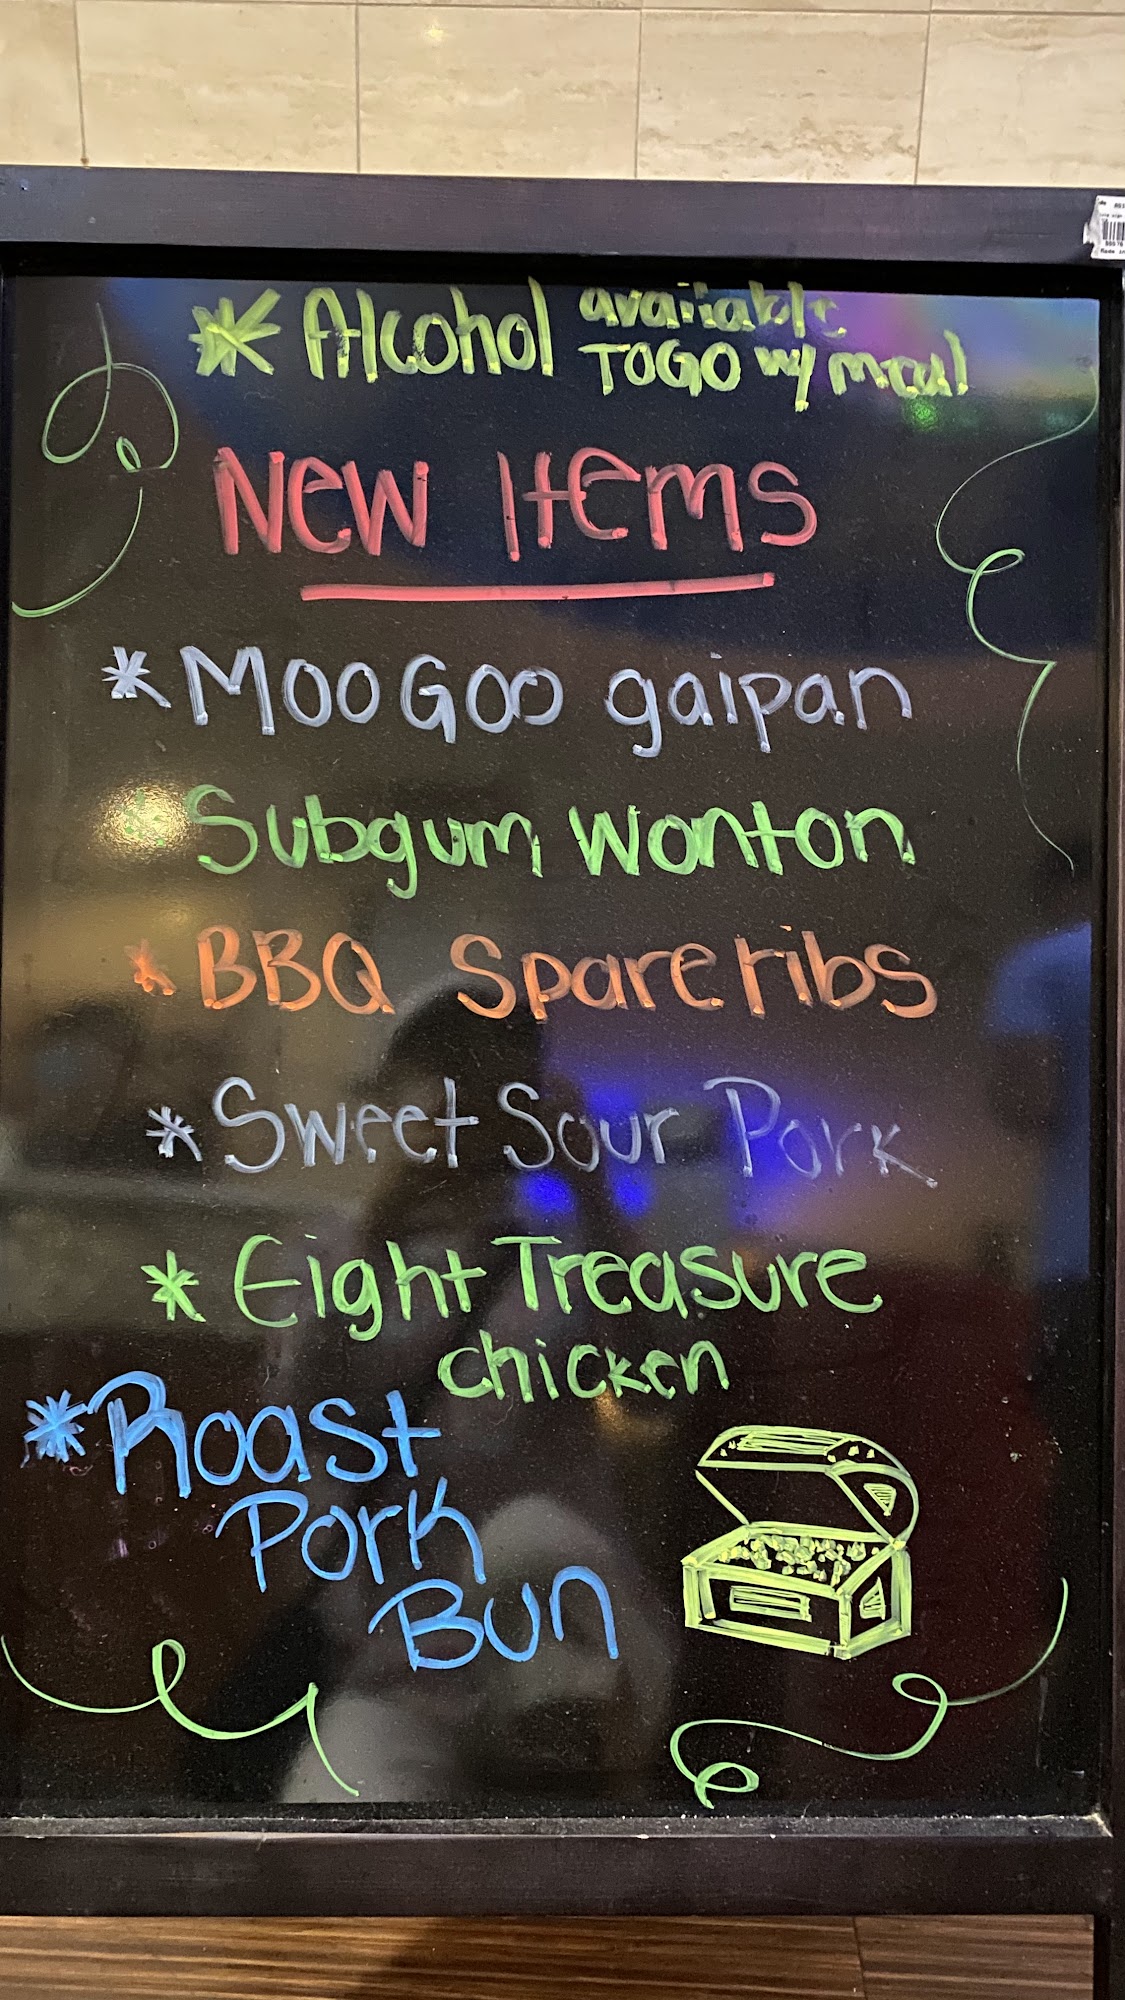 * Alcohol available
TOGO w/ meal
New Items
* Moo Goo gaipan
Subgum wonton
* BBQ Spareribs
* Sweet Sour Pork
* Eight Treasure
chicken
* Roast
Pork
Bun